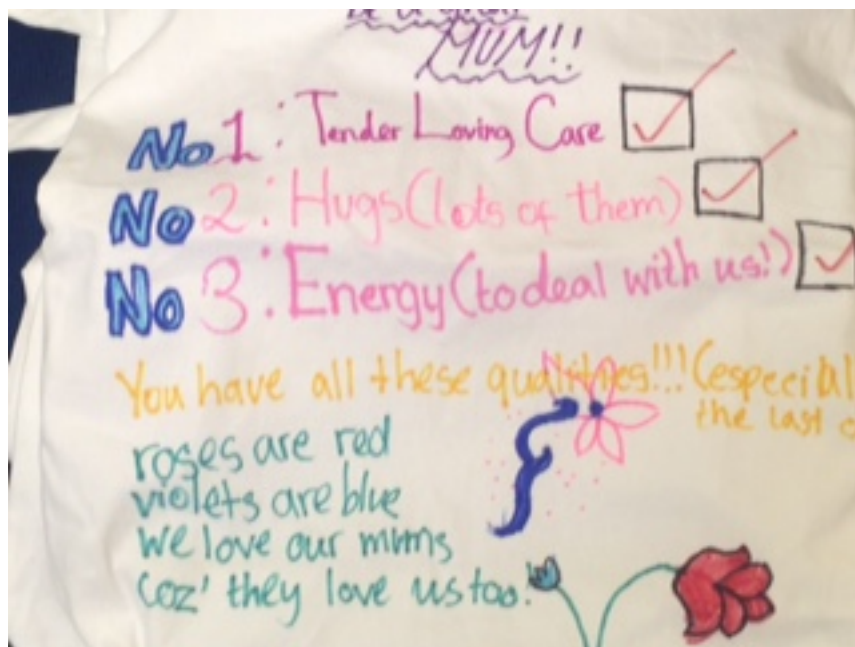 be a good
MUM!!
No 1: Tender Loving Care
No 2: Hugs (lots of them)
No 3: Energy (to deal with us!)
You have all these qualities!!! (especial
the last
roses are red
violets are blue
we love our mums
coz' they love us too!